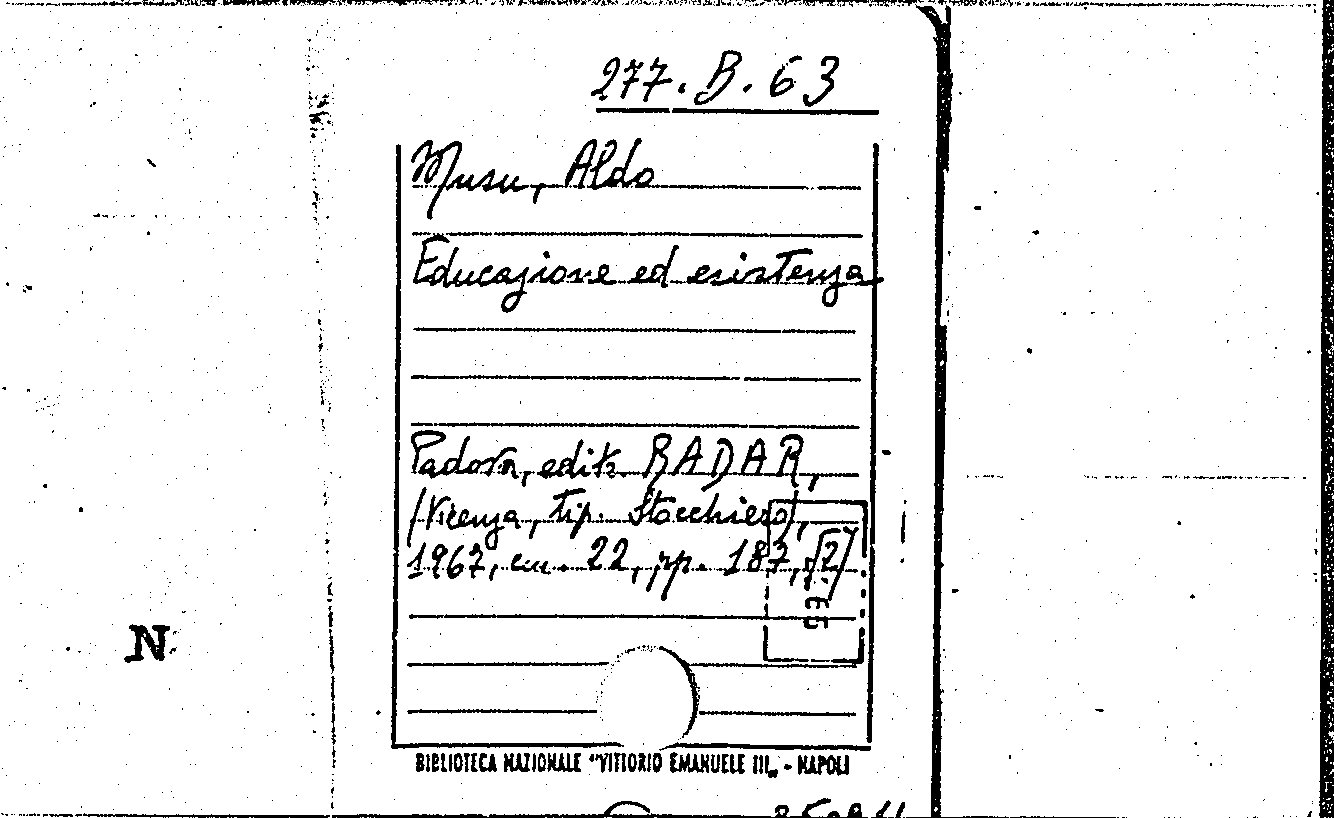 277.B.63
Musu, Aldo
Educazione ed esistenza
Padova, editr. RADAR,
/Vicenza, tip. Stocchiero/,
1967, cm. 22, pp. 187, /2/
N
BIBLIOTECA NAZIONALE "VITTORIO EMANUELE III„ - NAPOLI